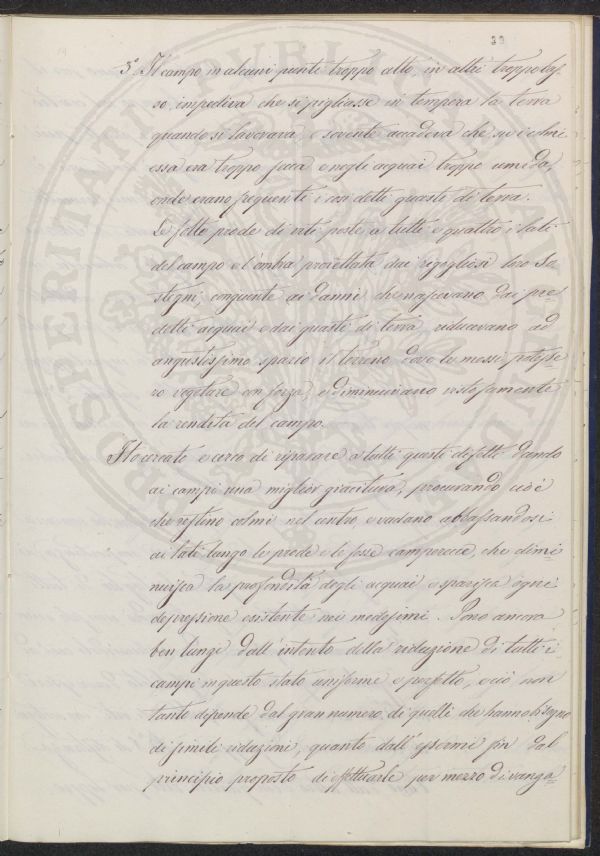 39
3.° Il campo in alcuni punti troppo alto, in altri troppo bas=
so, impediva che si pigliasse in tempera la terra
quando si lavorava, e sovente accadeva che sui colmi
essa era troppo secca e negli acquai troppo umida,
onde erano frequenti i così detti guasti di terra.
Le folte prode di viti poste a tutti e quattro i lati
del campo e l'ombra proiettata dai rigogliosi loro So=
stegni, congiunte ai danni che nascevano dai pre=
detti acquai e dai guasti di terra riducevano ad
angustissimo spazio il terreno dove le messi potesse=
ro vegetare con forza, e diminuivano
la rendita del campo.
Ho cercato e cerco di riparare a tutti questi difetti dando
ai campi una miglior giacitura, procurando cioè
che restino colmi nel centro e vadano abbassandosi
ai lati lungo le prode e le fosse camperecce, che dimi=
nuisca la profondità degli acquai e sparisca ogni
depressione esistente nei medesimi. Sono ancora
ben lungi dall'intento della riduzione di tutti i
campi in questo stato uniforme e perfetto, e ciò non
tanto dipende dal gran numero di quelli che hanno bisogno
di simile riduzioni, quanto dall'essermi fin dal
principio proposto di effettuarle per mezzo di vanga=
PROSPERITATI PUBLICAE AUGENDAE